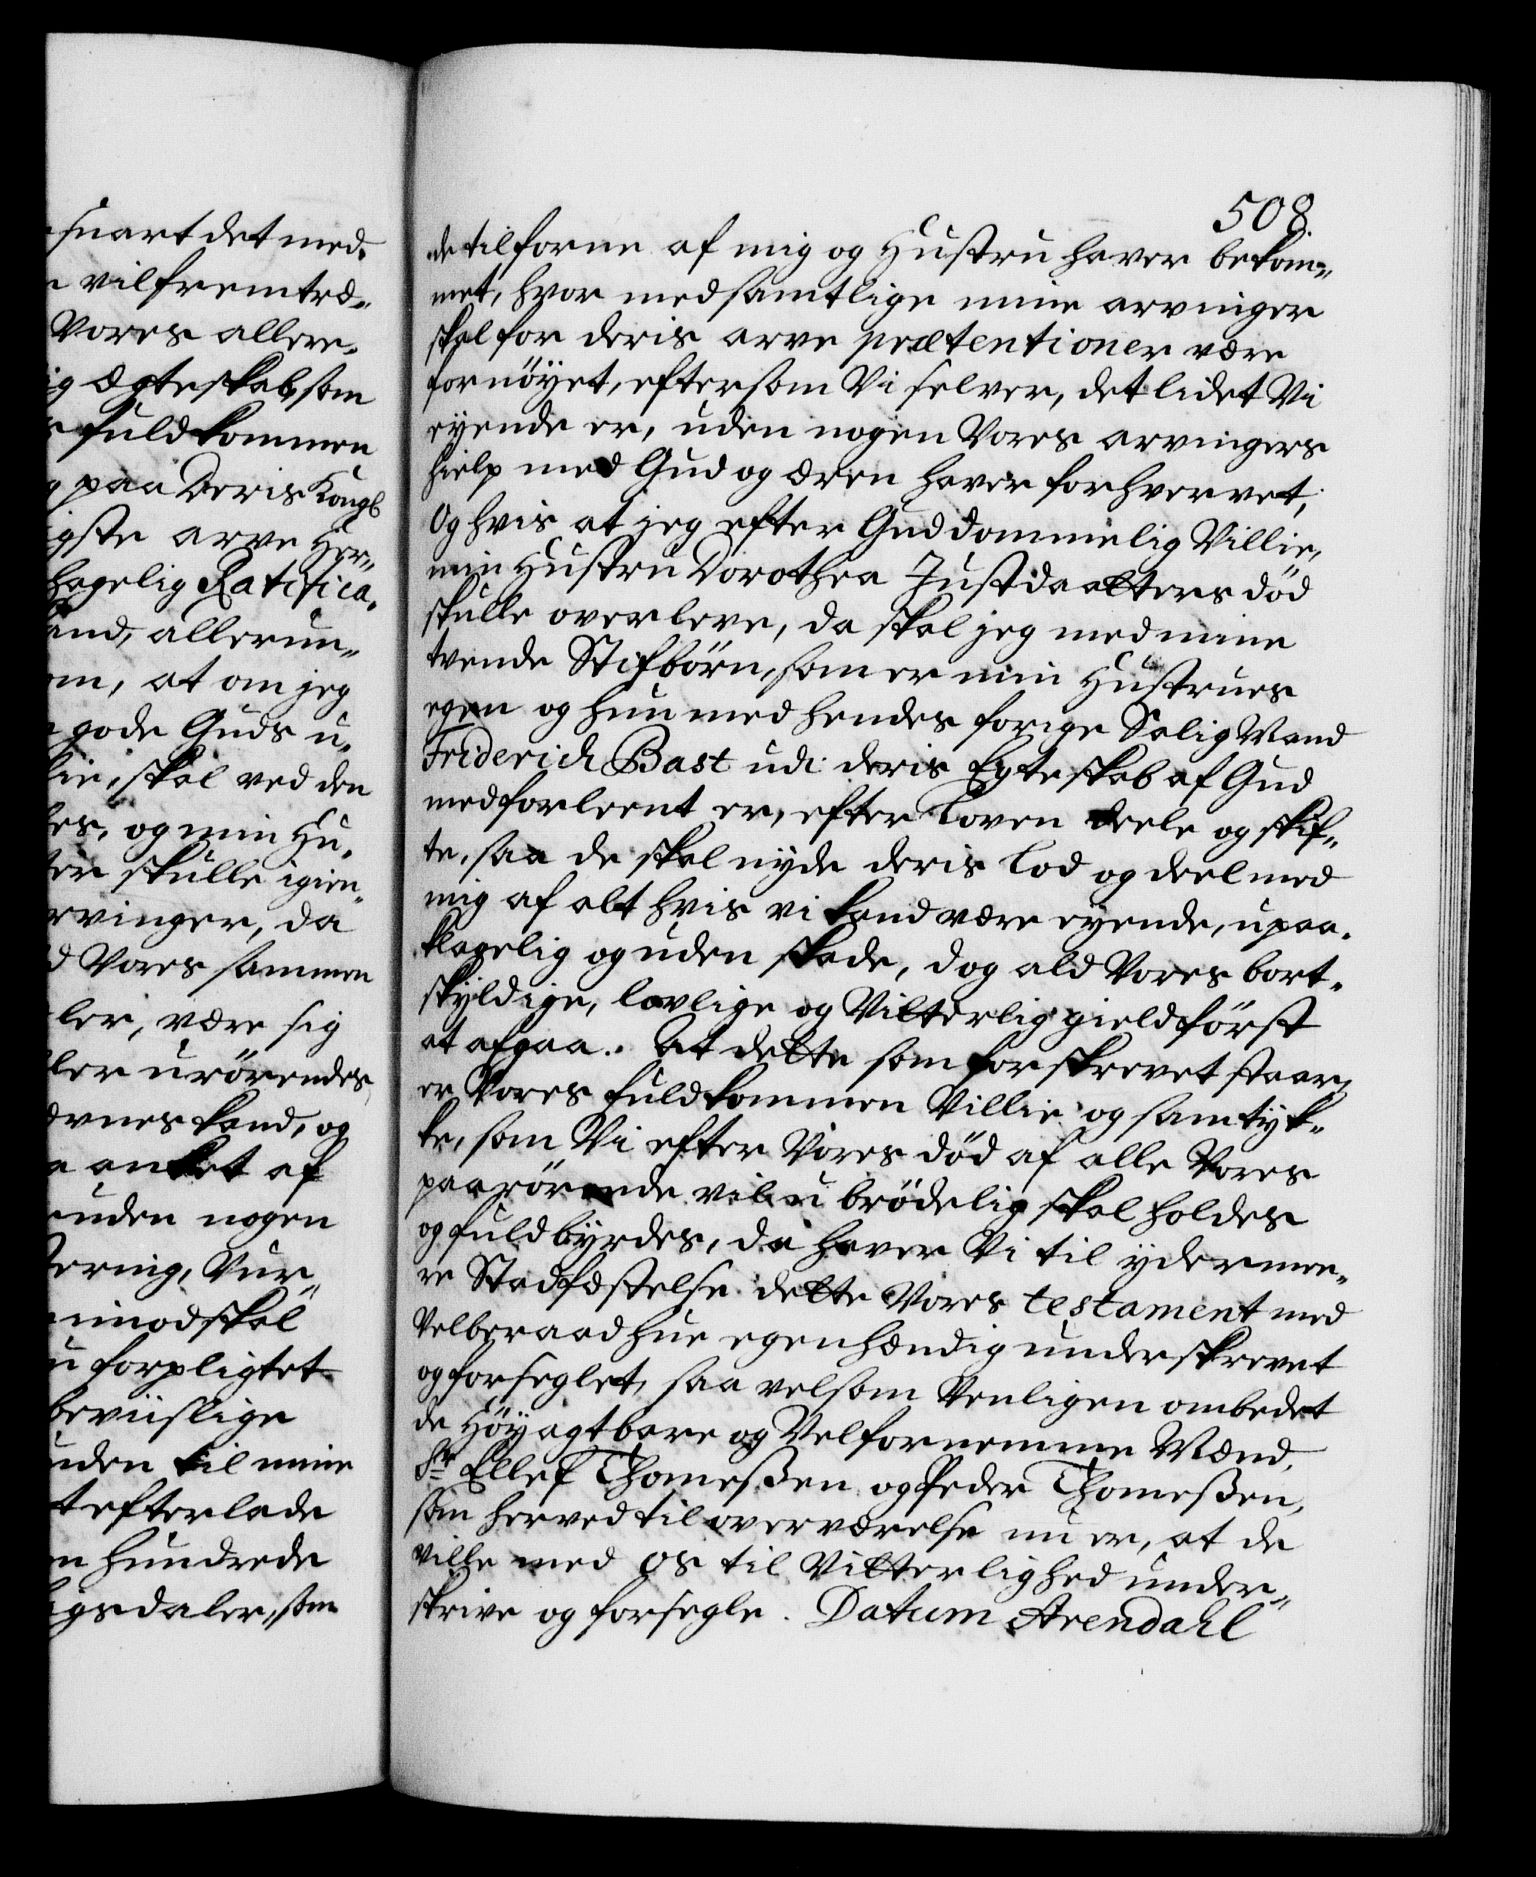 snart det med-
vil fremtræ-
Vores allere-
ig ægteskab, som
fuldkommen
paa Deris Kongl
igste arve Her-
hagelig Ratifica-
and, allerun-
om, at om jeg
gode Guds u-
lie, skal ved den
es, og min Hu-
ter skulle igien-
rvinger, da
d Vores sammen
ler, være sig
ler urörendes
ævnes kand, og
anket af
uden nogen
ering, Vur-
imod skal
u forpligtet
beviislige
uden til mine
t efterlade
en hundrede
igsdaler, som
508.
de tilforne af mig og Hustru haver bekom-
met, hvor med samtlige mine arvinger
skal for deris arve prætentioner være
fornöyet, eftersom Vi selver, det lidet Vi
eyende er, uden nogen Vores arvingers
hielp med Gud og æren haver forhvervet,
Og hvis at jeg efter Guddommelig Villie,
min Hustru Dorothea Justdaatters död
skulle overleve, da skal jeg med mine
tvende Stifbörn, som er min Hustrues
egen og hun med hendes forige Salig Mand
Friderich Bast udi deris Egteskab af Gud
med forleent er, efter Loven deele og skif-
te, saa de skal nyde deris Lod og deel med
mig af alt hvis vi kand være eyende, upaa-
klagelig og uden skade, dog ald Vores bort-
skyldige, lovlige og Vitterlig gield först
at afgaa. At dette som forskrevet staar,
er Vores fuldkommen Villie og samtyk-
ke, som Vi efter Vores död af alle Vores
paarörende vil ubrödelig skal holdes
og fuldbyrdes, da haver Vi til ydermee-
re Stadfæstelse dette Vores testament med
Velberaad hue egenhændig underskrevet
og forseglet, saa vel som Venligen ombedet
de Höyagtbare og Velfornemme Mænd,
Sr Ellef Thomeßen og Peder Thomeßen,
som herved til overværelse nu er, at de
ville med os til Vitterlighed under-
skrive og forsegle. Datum Arendahl